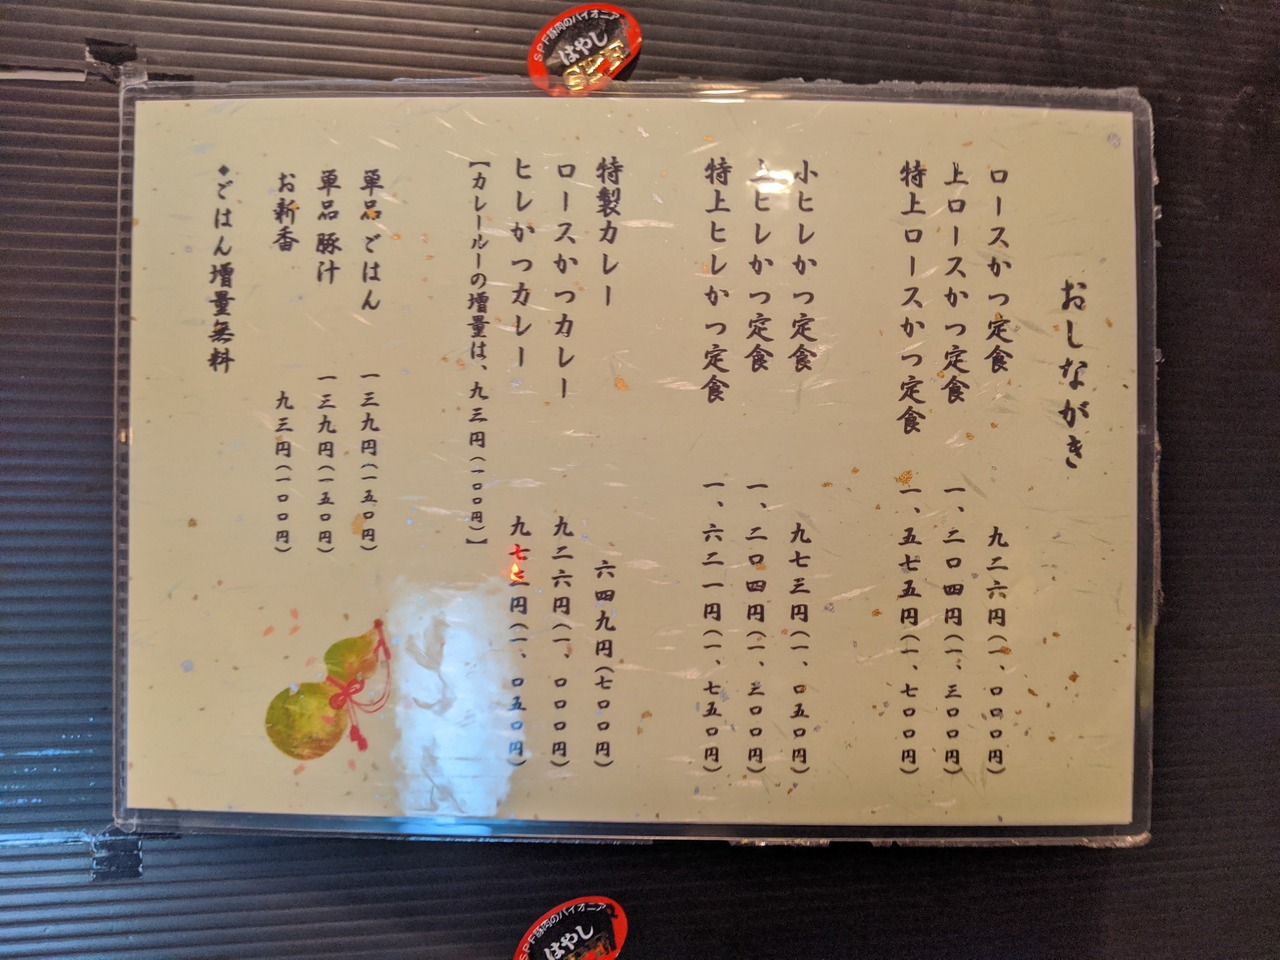 おしながき
ロースかつ定食 九二六円(一、〇〇〇円)
上ロースかつ定食 一、二〇四円(一、三〇〇円)
特上ロースかつ定食 一、五七五円(一、七〇〇円)
小ヒレかつ定食 九七三円(一、〇五〇円)
上ヒレかつ定食 一、二〇四円(一、三〇〇円)
特上ヒレかつ定食 一、六二一円(一、七五〇円)
特製カレー 六四九円(七〇〇円)
ロースかつカレー 九二六円(一、〇〇〇円)
ヒレかつカレー 九七三円(一、〇五〇円)
【カレールーの増量は、九三円(一〇〇円)】
単品ごはん 一三九円(一五〇円)
単品豚汁 一三九円(一五〇円)
お新香 九三円(一〇〇円)
◆ごはん増量無料
SPF豚肉のパイオニア
はやし
SPF
SPF豚肉のパイオニア
はやし